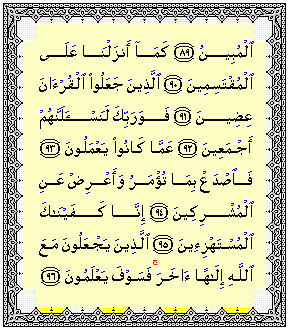 ٱلْمُبِينُ ٨٩ كَمَآ أَنزَلْنَا عَلَى
ٱلْمُقْتَسِمِينَ ٩٠ ٱلَّذِينَ جَعَلُوا۟ ٱلْقُرْءَانَ
عِضِينَ ٩١ فَوَرَبِّكَ لَنَسْـَٔلَنَّهُمْ
أَجْمَعِينَ ٩٢ عَمَّا كَانُوا۟ يَعْمَلُونَ ٩٣
فَٱصْدَعْ بِمَا تُؤْمَرُ وَأَعْرِضْ عَنِ
ٱلْمُشْرِكِينَ ٩٤ إِنَّا كَفَيْنَـٰكَ
ٱلْمُسْتَهْزِءِينَ ٩٥ ٱلَّذِينَ يَجْعَلُونَ مَعَ
ٱللَّهِ إِلَـٰهًا ءَاخَرَ ۚ فَسَوْفَ يَعْلَمُونَ ٩٦